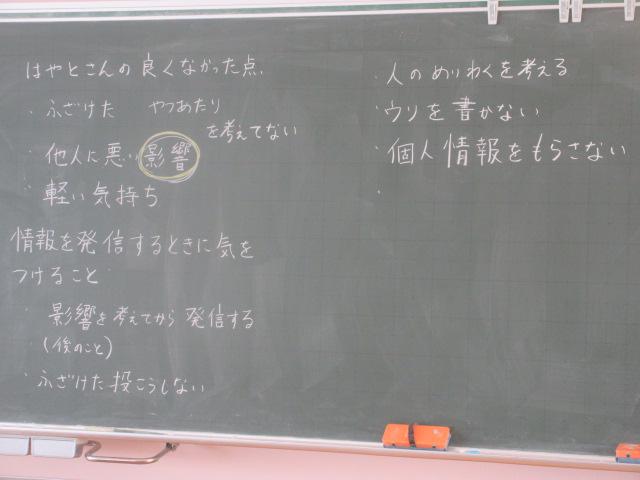 はやとさんの良くなかった点
・ふざけた やつあたり
・他人に悪い影響を考えてない
・軽い気持ち
情報を発信するときに気を
つけること
・影響を考えてから発信する
(後のこと)
・ふざけた投こうしない
・人のめいわくを考える
・ウソを書かない
・個人情報をもらさない
・